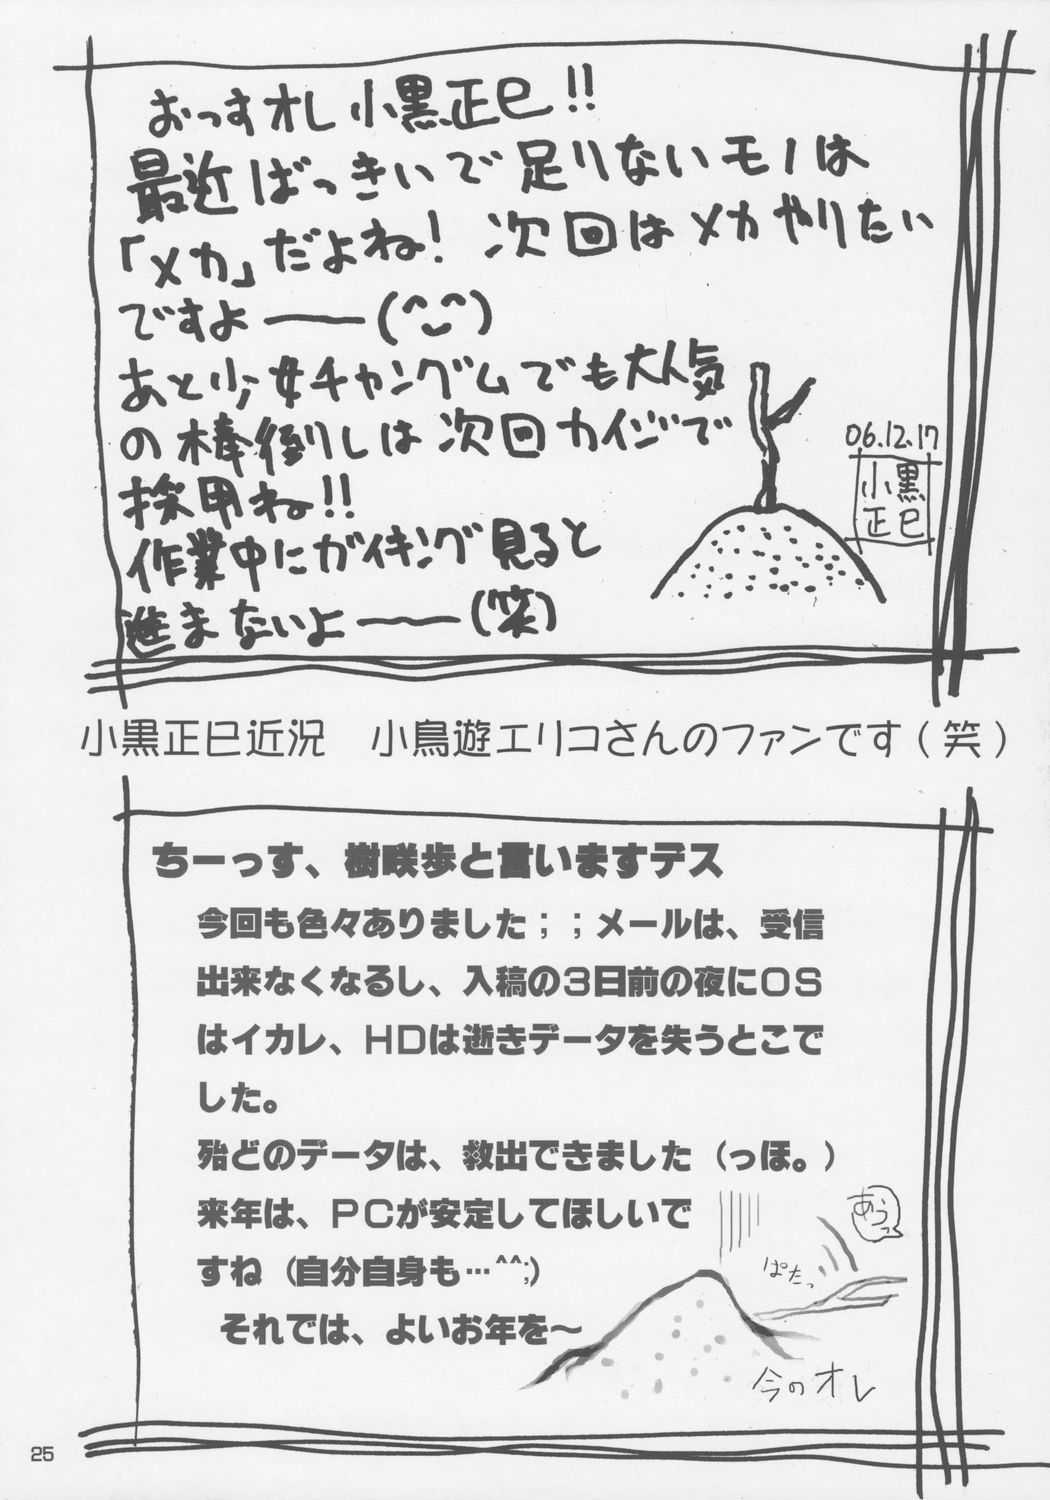 おっすオレ小黒正巳!!
最近ばっきいで足りないモノは
「メカ」だよね! 次回はメカやりたい
ですよ──(^‿^)
あと少女チャングムでも大人気
の棒倒しは次回カイジで
採用ね!!
作業中にガイキング見ると
進まないよ──(笑)
06.12.17
小黒
正巳
小黒正巳近況 小鳥遊エリコさんのファンです(笑)
ちーっす、樹咲歩と言いますデス
今回も色々ありました；；メールは、受信
出来なくなるし、入稿の3日前の夜にOS
はイカレ、HDは逝きデータを失うとこで
した。
殆どのデータは、救出できました（っほ。）
来年は、PCが安定してほしいで
すね（自分自身も…^^;）
それでは、よいお年を〜
あうっ
ぱたっ
今のオレ
25